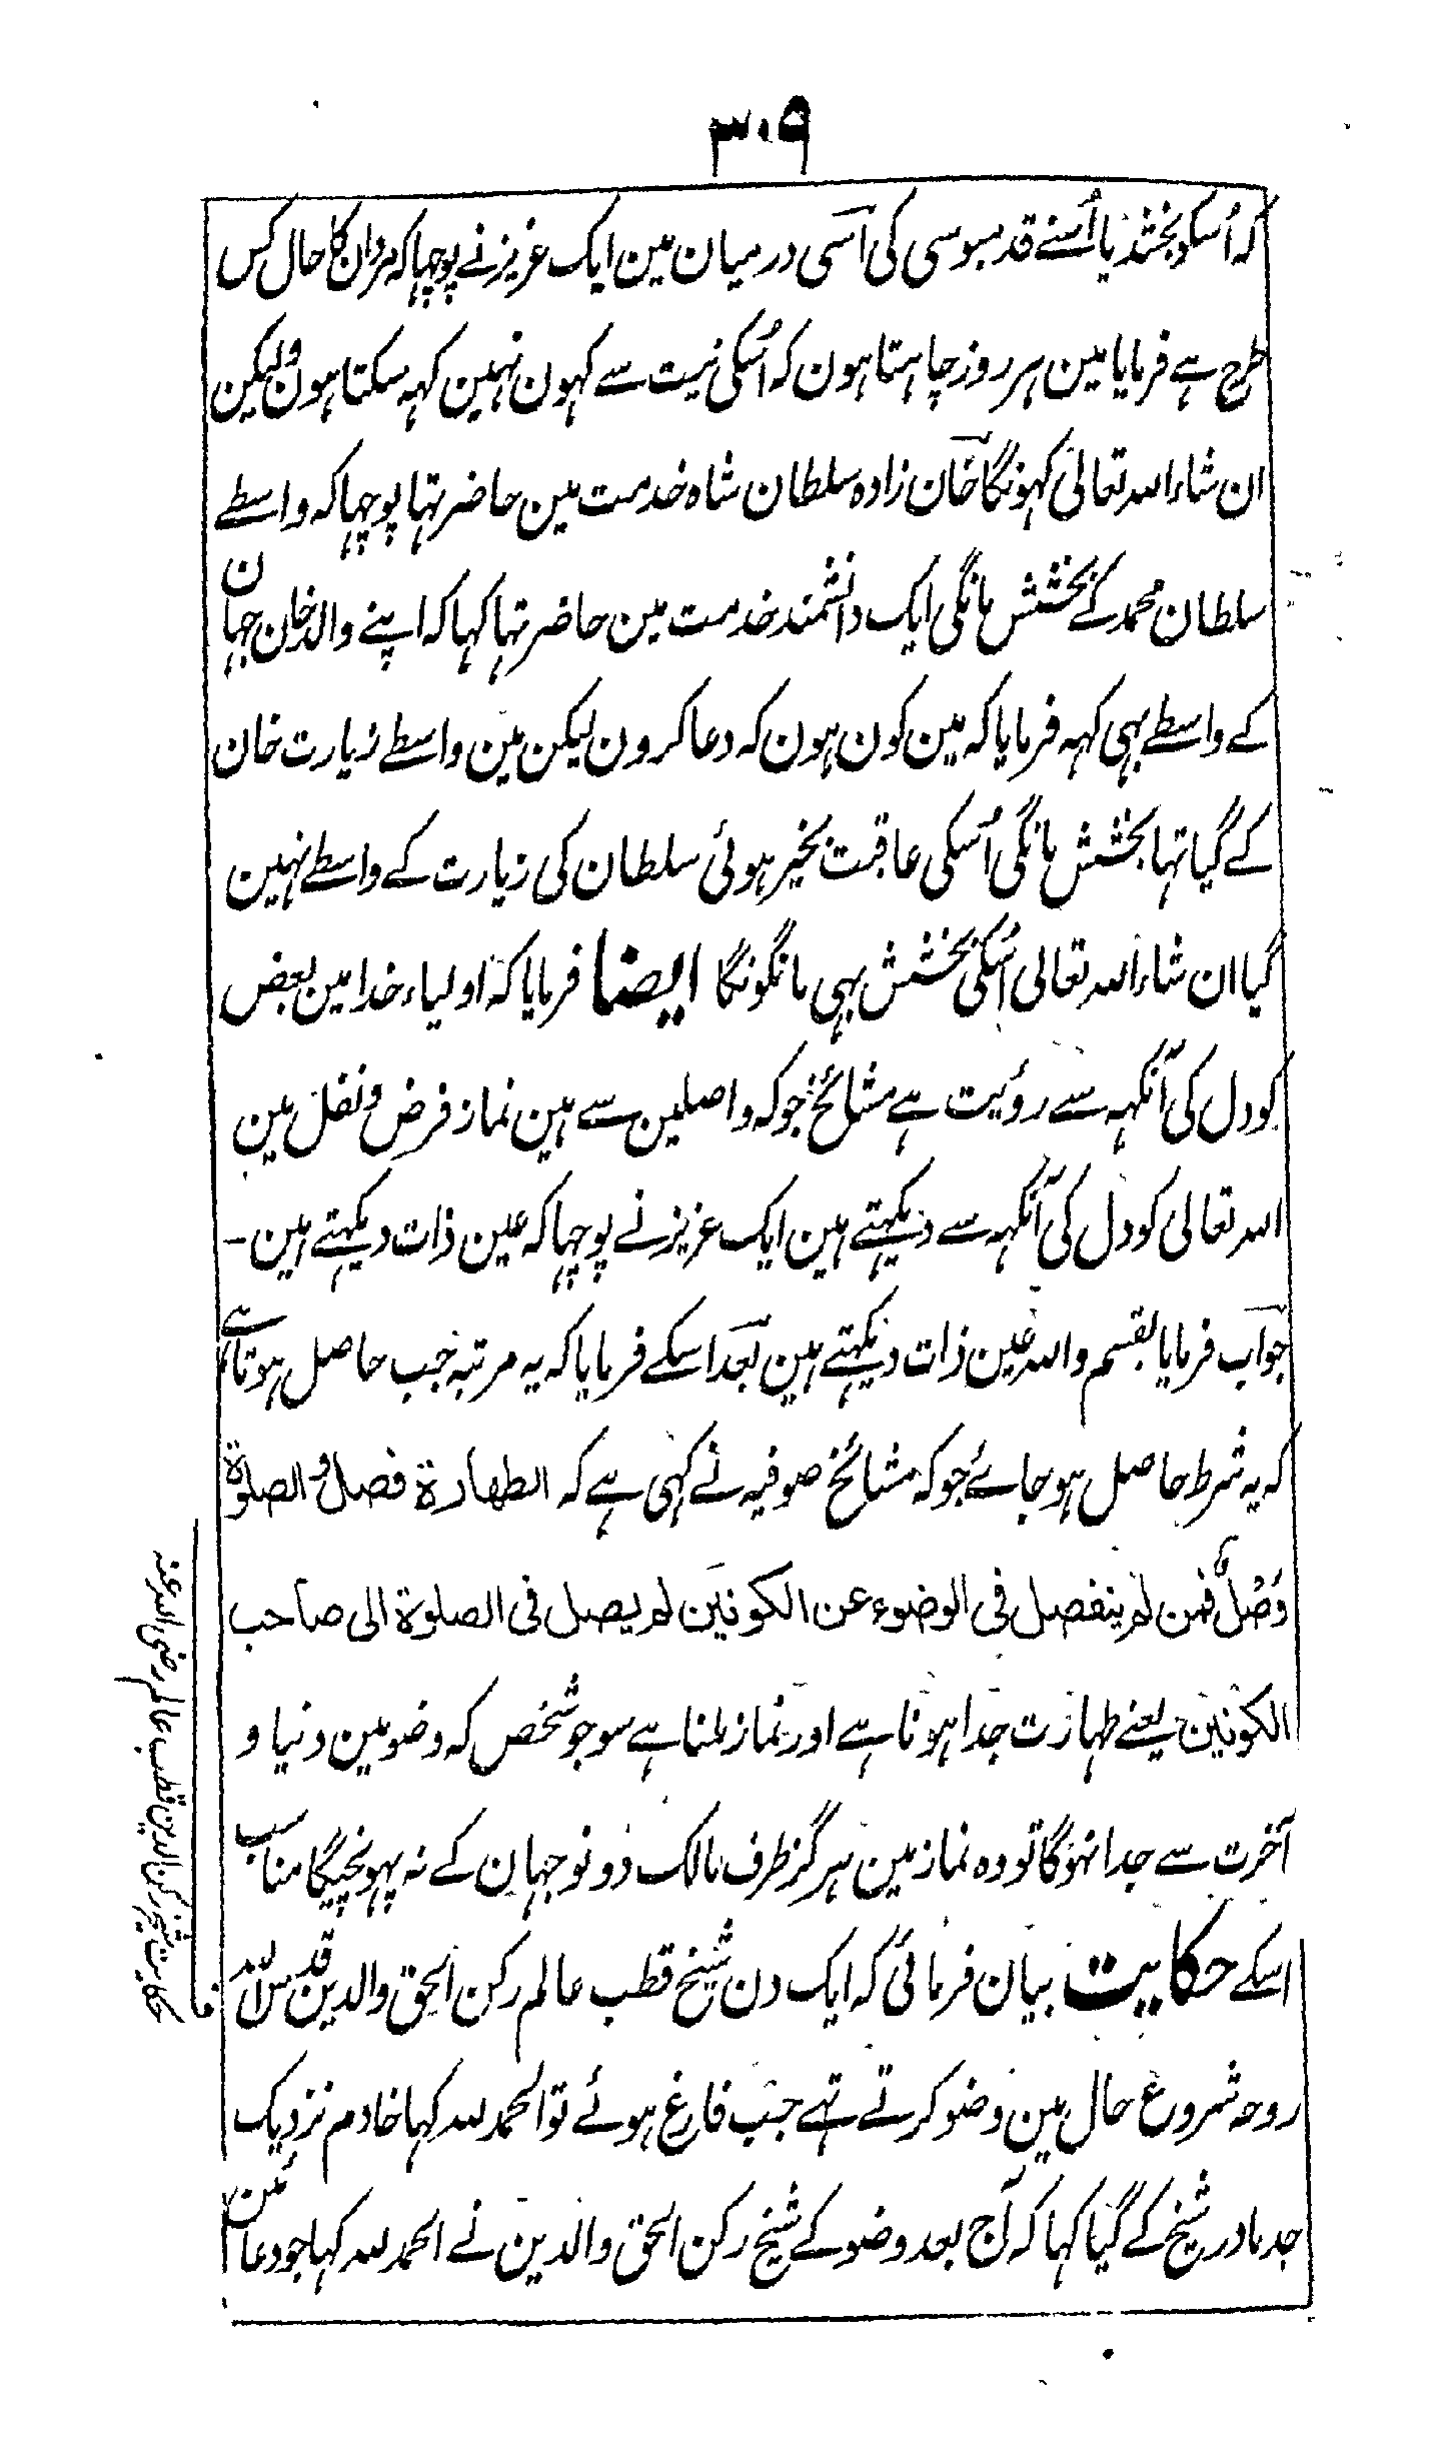 ۳۰۹
کہ اُسکو بخشدیا اُسنے قدمبوسی کی آسی درمیان مین ایک عزیز نے پوچہا کہ مردان کا حال کس
طرح ہے فرمایا مین ہر روز چاہتا ہون کہ اُسکی نیت سے کہون نہین کہہ سکتا ہون ولیکن
ان شاء اللہ تعالیٰ کہونگا خان زادہ سلطان شاہ خدمت مین حاضر تہا پوچہا کہ واسطے
سلطان محمد کے بخشش مانگی ایک دانشمند خدمت مین حاضر تہا کہا کہ اپنے والد خان جہان
کے واسطے بہی کہہ فرمایا کہ مین کون ہون کہ دعا کرون لیکن مین واسطے زیارت خان
کے گیا تہا بخشش مانگی اُسکی عاقبت بخیر ہوئی سلطان کی زیارت کے واسطے نہین
گیا ان شاء اللہ تعالی اُسکی بخشش بہی مانگونگا ایضا فرمایا کہ اولیاء خدا مین بعض
کو دل کی آنکہہ سے روئیت ہے مشائخ جو کہ واصلین سے ہین نماز فرض و نفل مین
اللہ تعالی کو دل کی آنکہہ سے دیکہتے ہین ایک عزیز نے پوچہا کہ عین ذات دیکہتے ہین ۔
جواب فرمایا بقسم واللہ عین ذات دیکہتے ہین بعد اسکے فرمایا کہ یہ مرتبہ جب حاصل ہوتا ہے
کہ یہ شرط حاصل ہو جائے جو کہ مشائخ صوفیہ نے کہی ہے کہ الطہارۃ فصل و الصلوۃ
وَصْلٌ فمن لم ینفصل فی الوضوء عن الکونین لم یصل فی الصلوۃ الی صاحب
الکونین یعنے طہارت جدا ہونا ہے اور نماز ملنا ہے سو جو شخص کہ وضو مین دنیا و
آخرت سے جدا نہوگا تو وہ نماز مین ہرگز طرف مالک دونو جہان کے نہ پہونچیگا مناسب
اسکے حکایت بیان فرمائی کہ ایک دن شیخ قطب عالم رکن الحق والدین قدس اللہ
روحہ شروع حال مین وضو کرتے تہے جب فارغ ہوئے تو الحمد للہ کہا خادم نزدیک
جد مادر شیخ کے گیا کہا کہ آج بعد وضو کے شیخ رکن الحق والدین نے الحمد للہ کہا جو دعائین
حکایت شیخ رکن الدین قطب عالم رضی اللہ عنہ